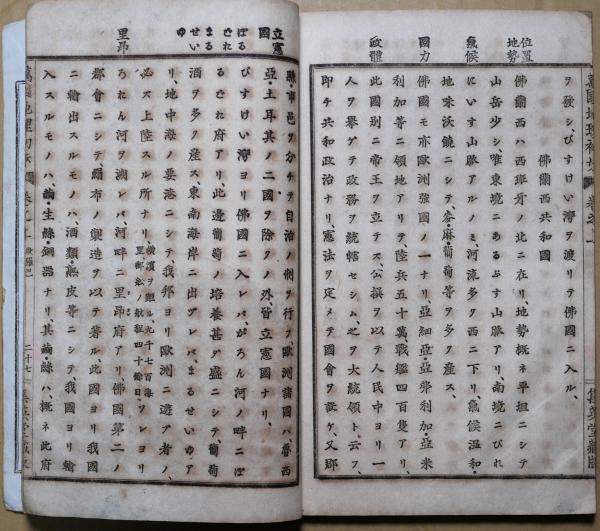 位置
地勢
氣候
國力
政體
ヲ發シ、びすけい灣ヲ渡リテ佛國ニ入ル、
佛蘭西共和國
佛蘭西ハ西班牙ノ北ニ在リ、地勢概ネ平坦ニシテ
山岳少シ、唯東境ニあるぷす山脈アリ、南境ニぴれ
にいす山脈アルノミ、河流多ク西ニ下リ、氣候溫和・
地味沃饒ニシテ、麥・麻・葡萄等ヲ多ク產ス、
佛國モ亦歐洲強國ノ一ナリ、亞細亞・亞弗利加・亞米
利加等ニ領地アリ、陸兵五十萬、戰艦四百隻アリ、
此國別ニ帝王ヲ立テス、公撰ヲ以テ人民中ヨリ一
人ヲ擧ゲテ政務ヲ統轄セシム、之ヲ大統領ト云フ、
即チ共和政治ナリ、憲法ヲ定メテ國會ヲ設ケ、又郡
集英堂藏版
立憲
國
ぼる
どれ
まる
せいい
ゆ
里昂
縣・市邑ヲ分チテ自治ノ制ヲ行フ、歐洲諸國ハ魯西
亞・土耳其ノ二國ヲ除クノ外、皆立憲國ナリ、
びすけい灣ヨリ佛國ニ入レバ、がろん河ノ畔ニぼ
るどれ府アリ、此邊葡萄ノ培養甚ダ盛ニシテ、葡萄
酒ヲ多ク產ス、東南海岸ニ出ヅレバ、まるせいゆア
リ、地中海ノ要港ニシテ、我邦ヨリ歐洲ニ遊ブ者ノ、
必ズ上陸スル所ナリ、橫濱ヲ距ル九千七百海里郵船ノ航程四十餘日ソレヨリ
ろおん河ヲ溯レバ、河畔ニ里昂府アリ、佛國第二ノ
都會ニシテ、絹布ノ製造ヲ以テ著ル、此國ヨリ我國
ニ輸出スルモノハ、酒類・熟皮等ニシテ、我國ヨリ輸
入スルモノハ、繭・生絲・銅器ナリ、其繭・絲ハ、概ネ此府
二十七